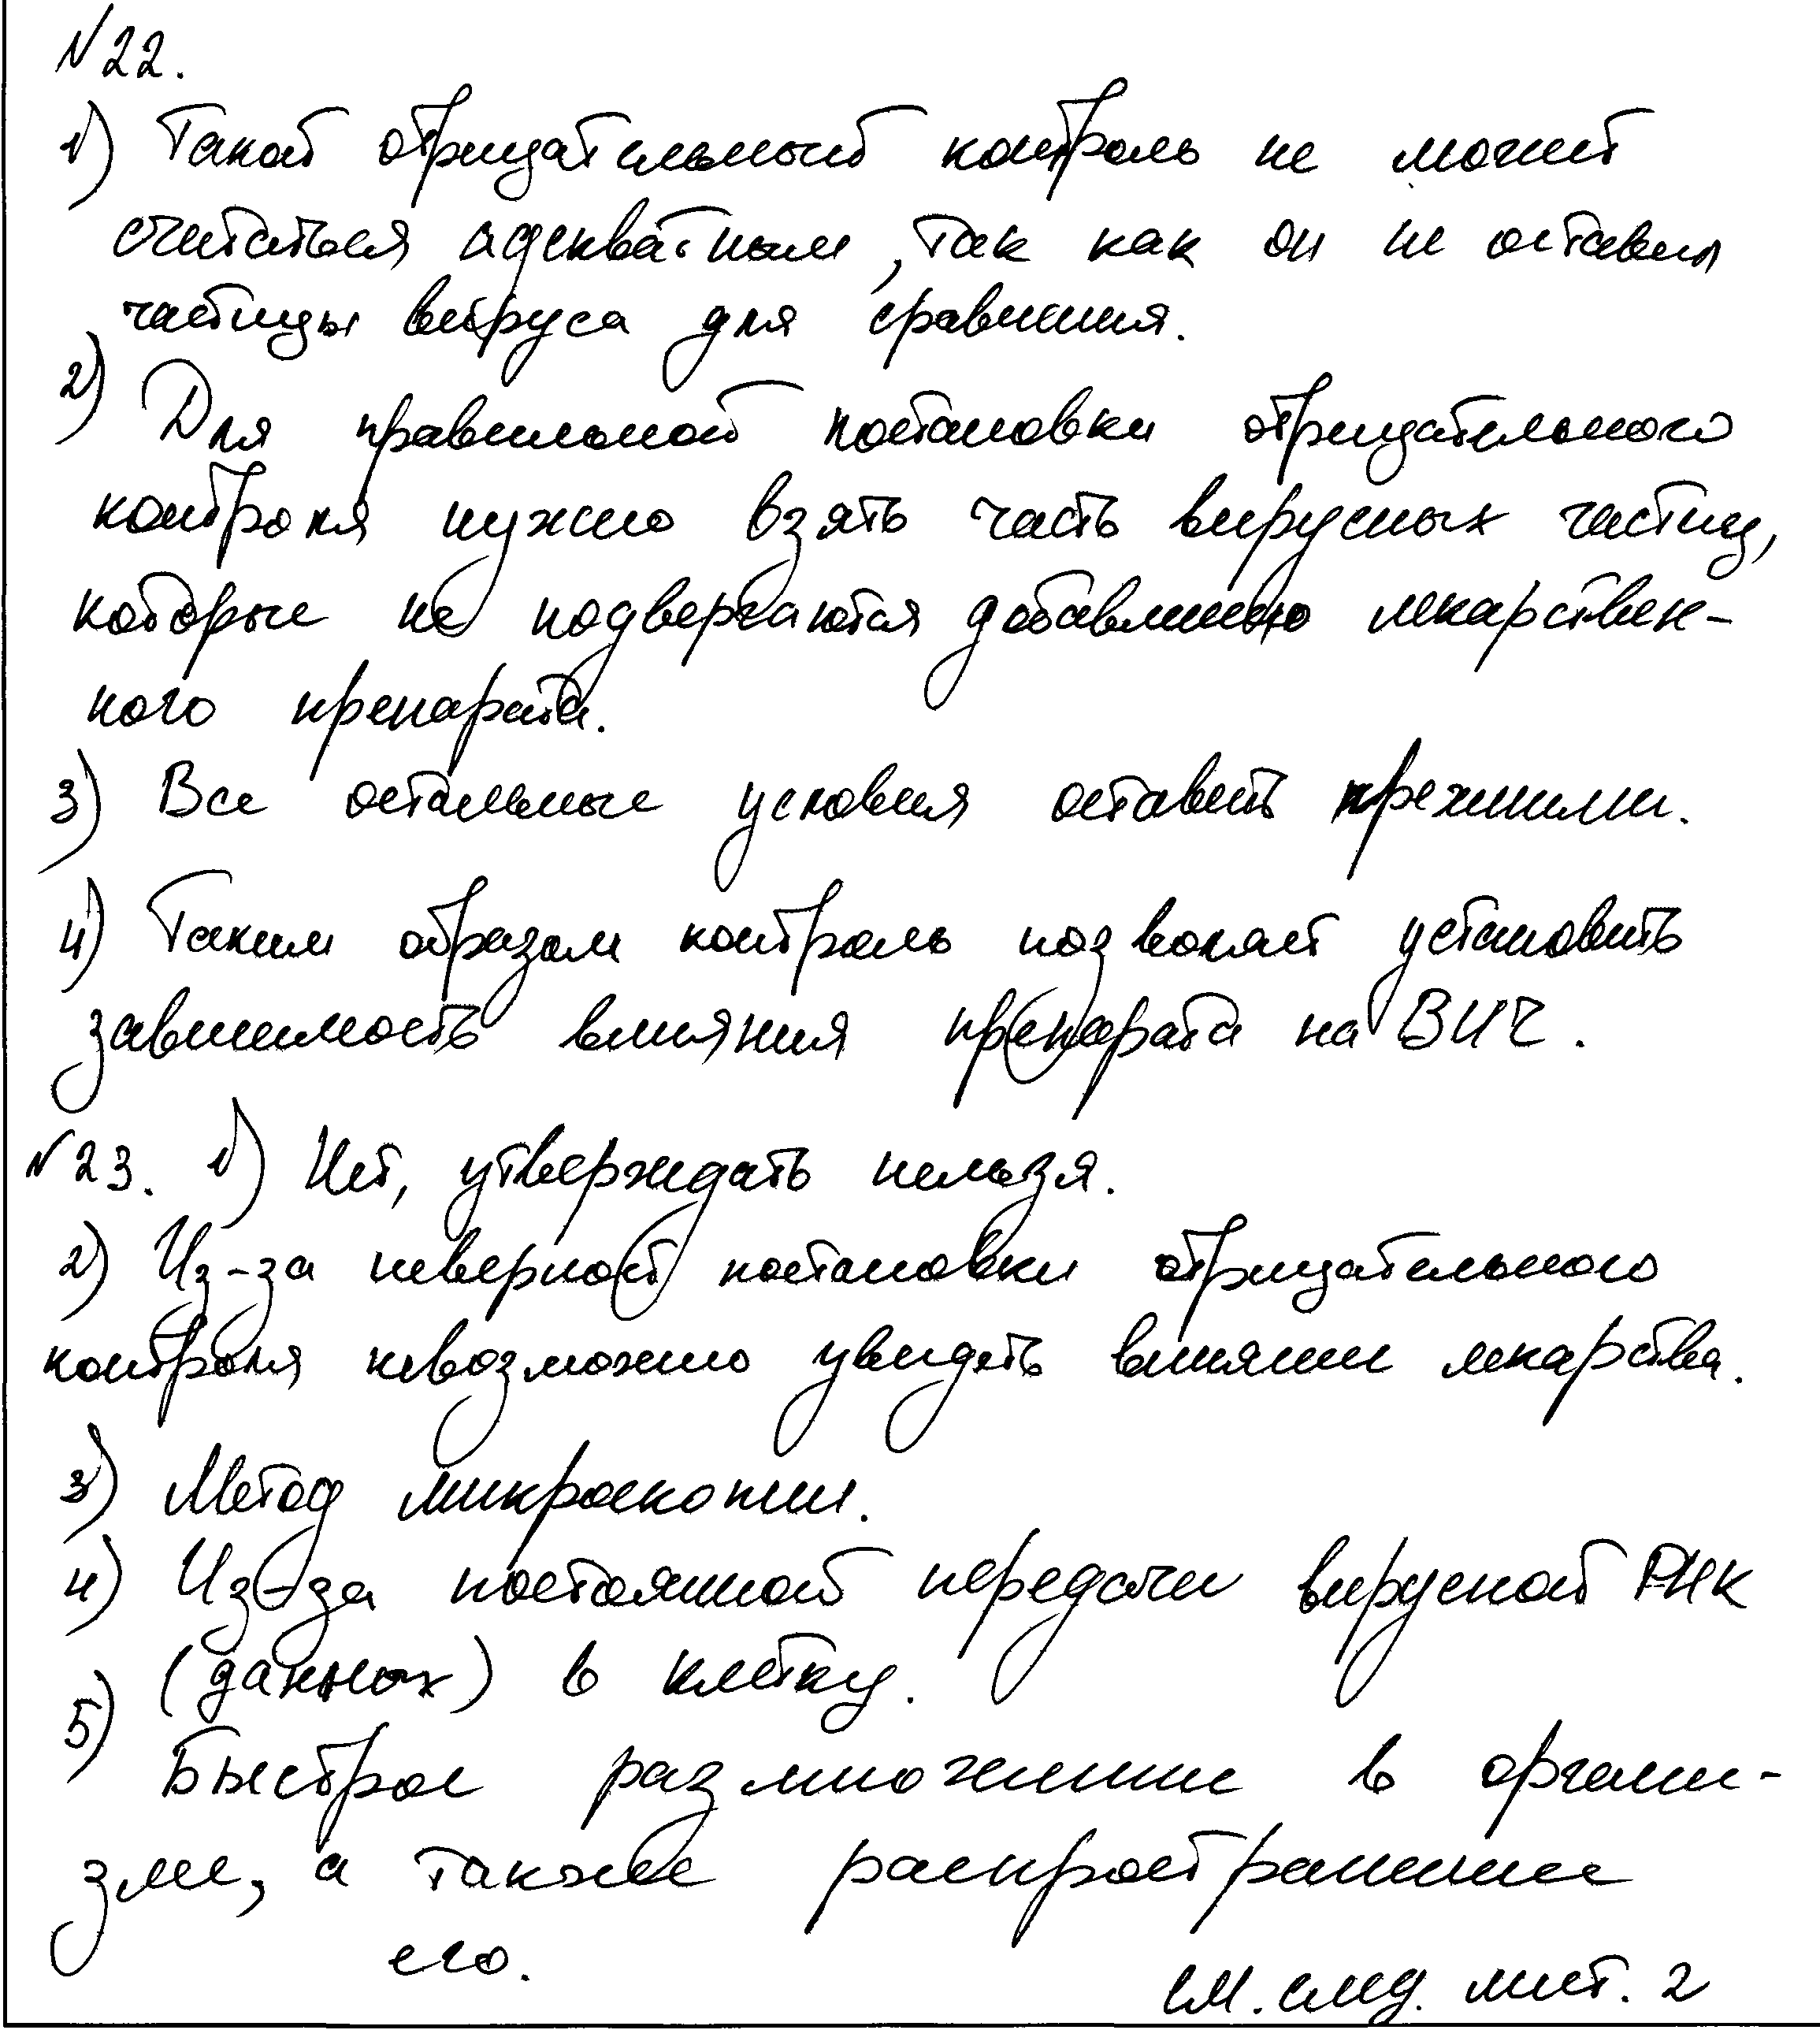 №22.
1) Такой отрицательный контроль не может
считаться адекватным, так как он не оставил
частицы вируса для сравнения.
2) Для правильной постановки отрицательного
контроля нужно взять часть вирусных частиц,
которые не подвергаются добавлению лекарствен-
ного препарата.
3) Все остальные условия оставить прежними.
4) Таким образом контроль позволяет установить
зависимость влияния препарата на ВИЧ.
№23. 1) Нет, утверждать нельзя.
2) Из-за неверной постановки отрицательного
контроля невозможно увидеть влияние лекарства.
3) Метод микроскопии.
4) Из-за постоянной передачи вирусной РНК
(данных) в клетку.
5) Быстрое размножение в органи-
зме, а также распространение
его.
см. след. лист. 2